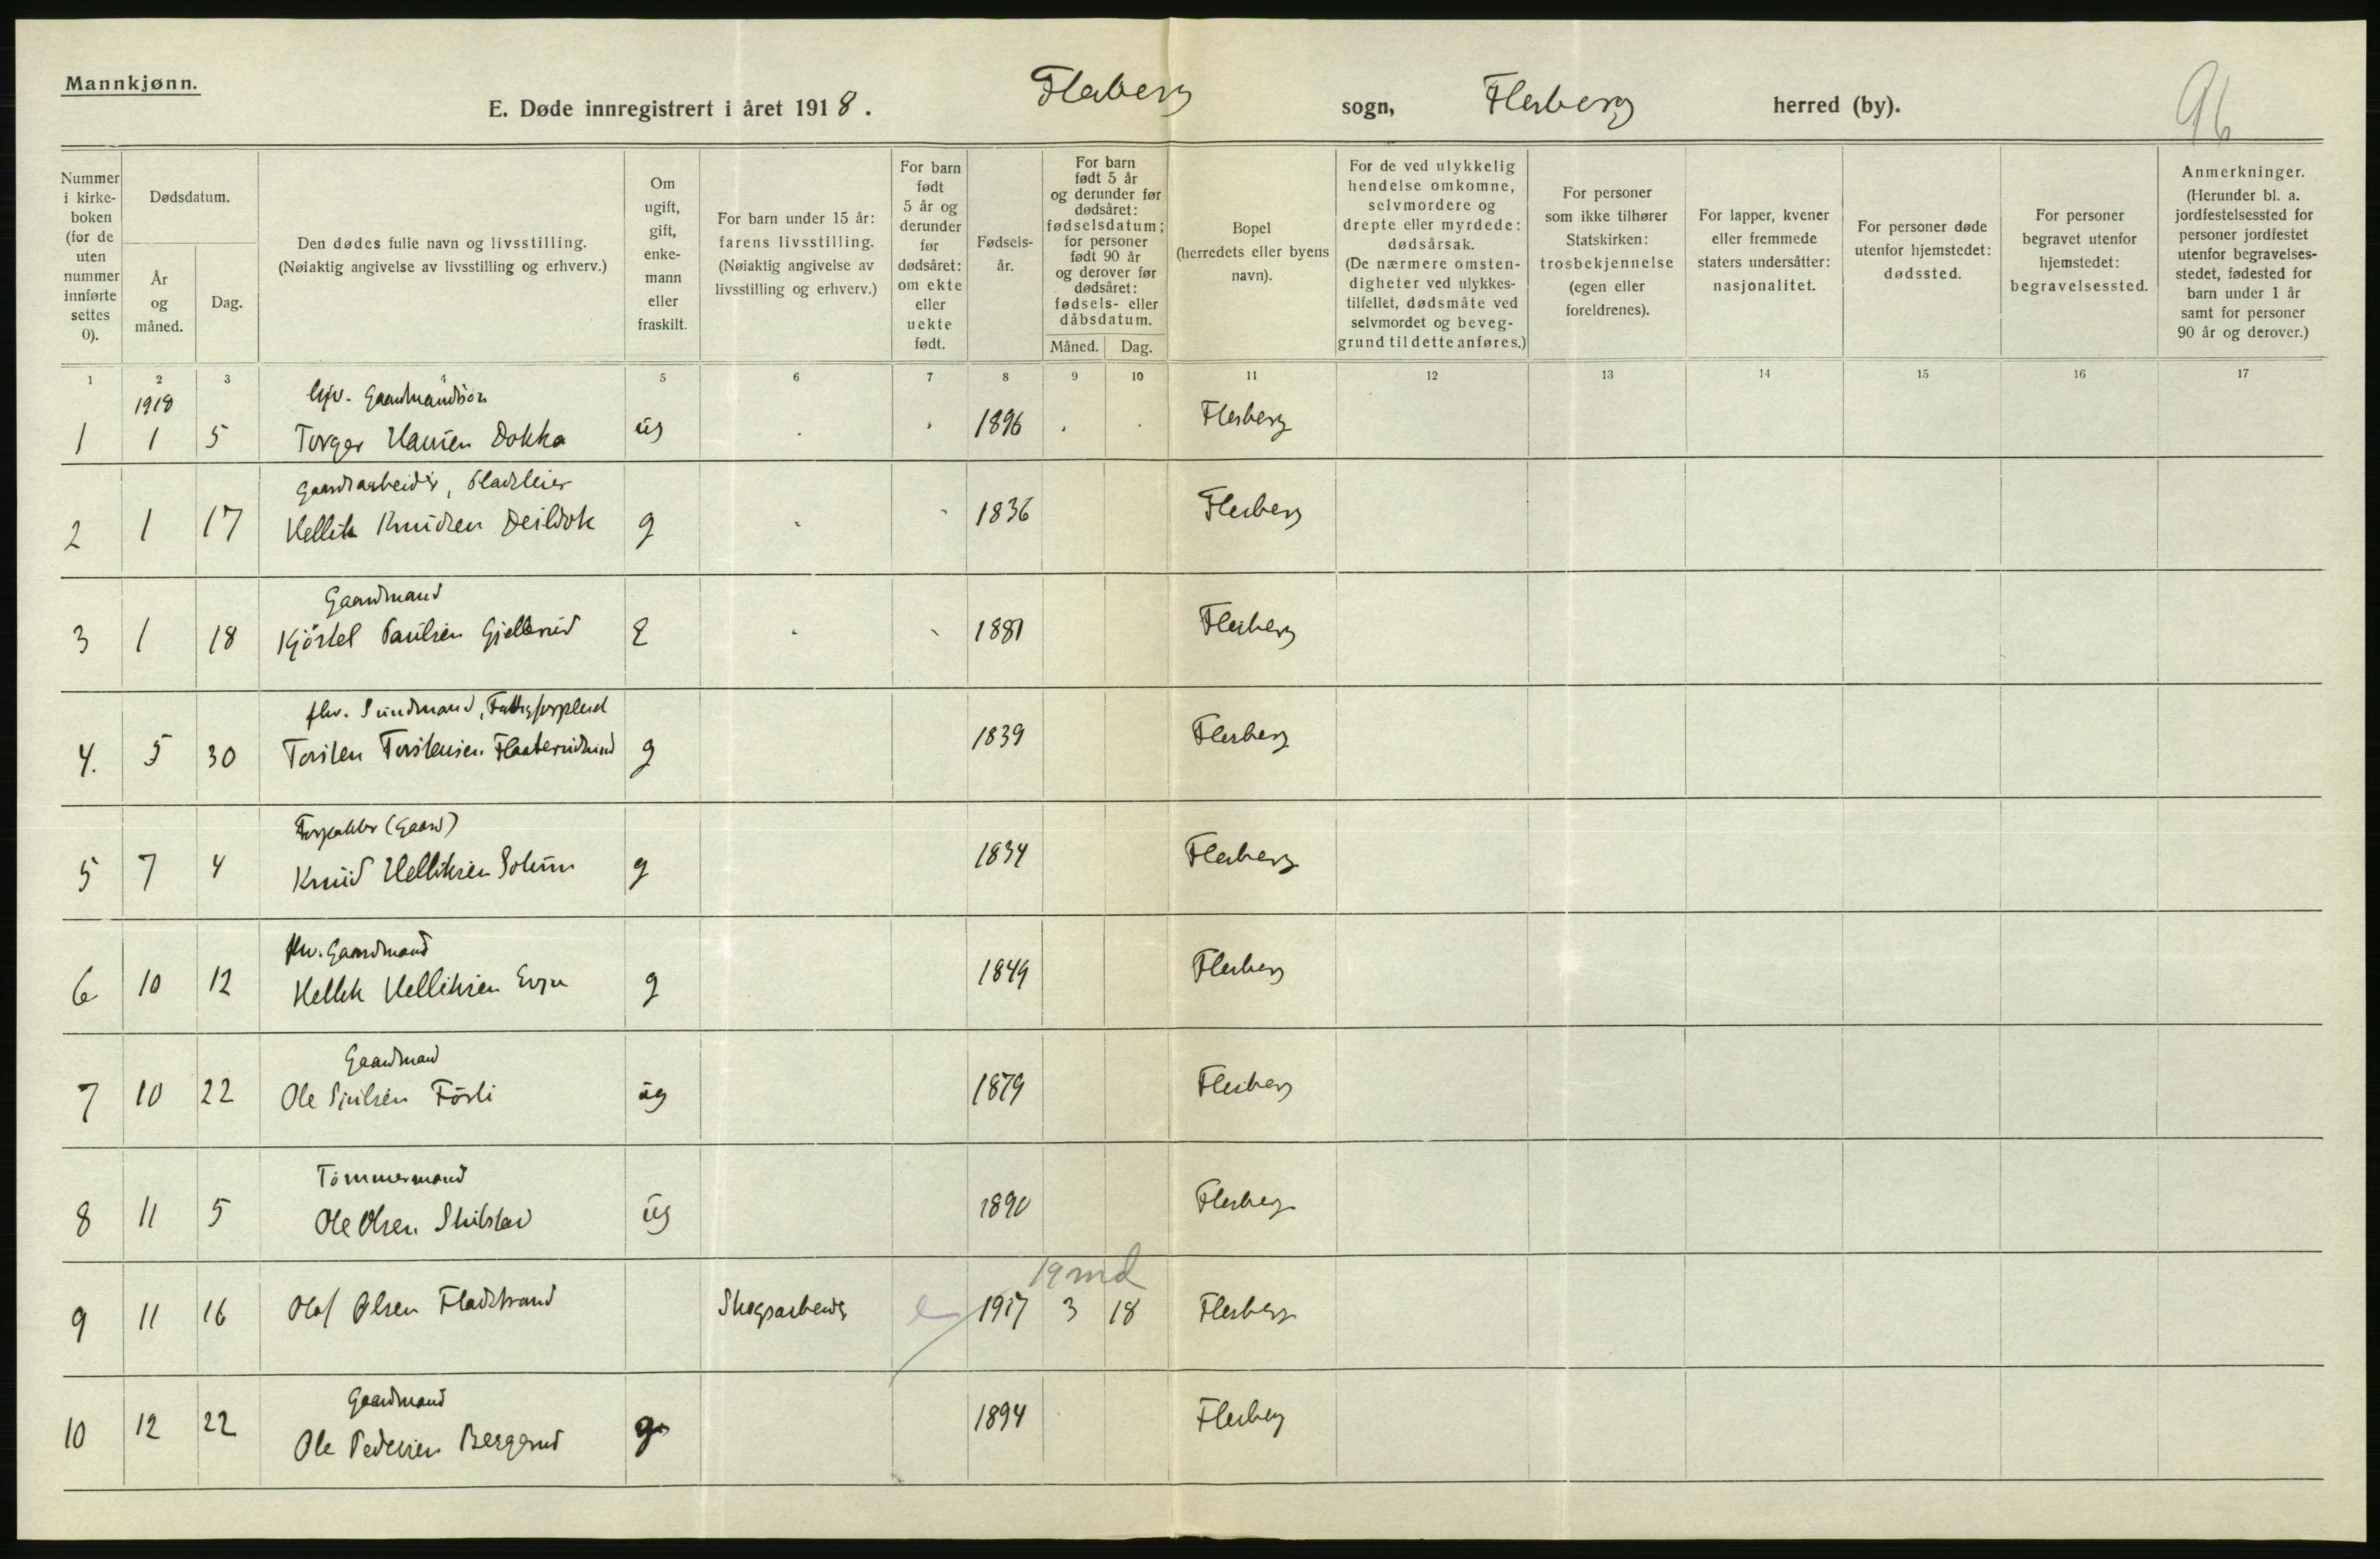 Mannkjønn.
E. Døde innregistrert i året 1918. Flesberg sogn, Flesberg herred (by).
96
Nummer i kirke-boken (for de uten nummer innførte settes 0).
Dødsdatum.
År og måned.
Dag.
Den dødes fulle navn og livsstilling.
(Nøiaktig angivelse av livsstilling og erhverv.)
Om ugift, gift, enke-mann eller fraskilt.
For barn under 15 år: farens livsstilling.
(Nøiaktig angivelse av livsstilling og erhverv.)
For barn født 5 år og derunder før dødsåret: om ekte eller uekte født.
Fødsels-år.
For barn født 5 år og derunder før dødsåret: fødselsdatum; for personer født 90 år og derover før dødsåret: fødsels- eller dåbsdatum.
Måned. Dag.
Bopel (herredets eller byens navn).
For de ved ulykkelig hendelse omkomne, selvmordere og drepte eller myrdede: dødsårsak.
(De nærmere omsten-digheter ved ulykkes-tilfellet, dødsmåte ved selvmordet og beveg-grund til dette anføres.)
For personer som ikke tilhører Statskirken: trosbekjennelse (egen eller foreldrenes).
For lapper, kvener eller fremmede staters undersåtter: nasjonalitet.
For personer døde utenfor hjemstedet: dødssted.
For personer begravet utenfor hjemstedet: begravelsessted.
Anmerkninger.
(Herunder bl. a. jordfestelsessted for personer jordfestet utenfor begravelses-stedet, fødested for barn under 1 år samt for personer 90 år og derover.)
1 2 3 4 5 6 7 8 9 10 11 12 13 14 15 16 17
1918 Gaardmandsøn
1 1 5 Torger Hansen Dokka ug 1896 Flesberg
Gaardsarbeider, Pladseier
2 1 17 Hellik Knudsen Deildok g 1836 Flesberg
Gaardmand
3 1 18 Kjøstel Paulsen Gjellerud E 1881 Flesberg
fhv. Sundmand, Fattigforpleiet
4. 5 30 Torsten Torstensen g 1839 Flesberg
(Gaard)
5 7 4 Knud Helliksen Solum g 1834 Flesberg
fhv. Gaardmand
6 10 12 Hellik Helliksen Evju g 1849 Flesberg
Gaardmand
7 10 22 Ole Sjulsen Førli ug 1879 Flesberg
Tømmermand
8 11 5 Ole Olsen ug 1890 Flesberg
19 md
9 11 16 Olaf Olsen Fladstrand Skogsarbeider e 1917 3 18 Flesberg
Gaardmand
10 12 22 Ole Pedersen Bergerud g 1894 Flesberg